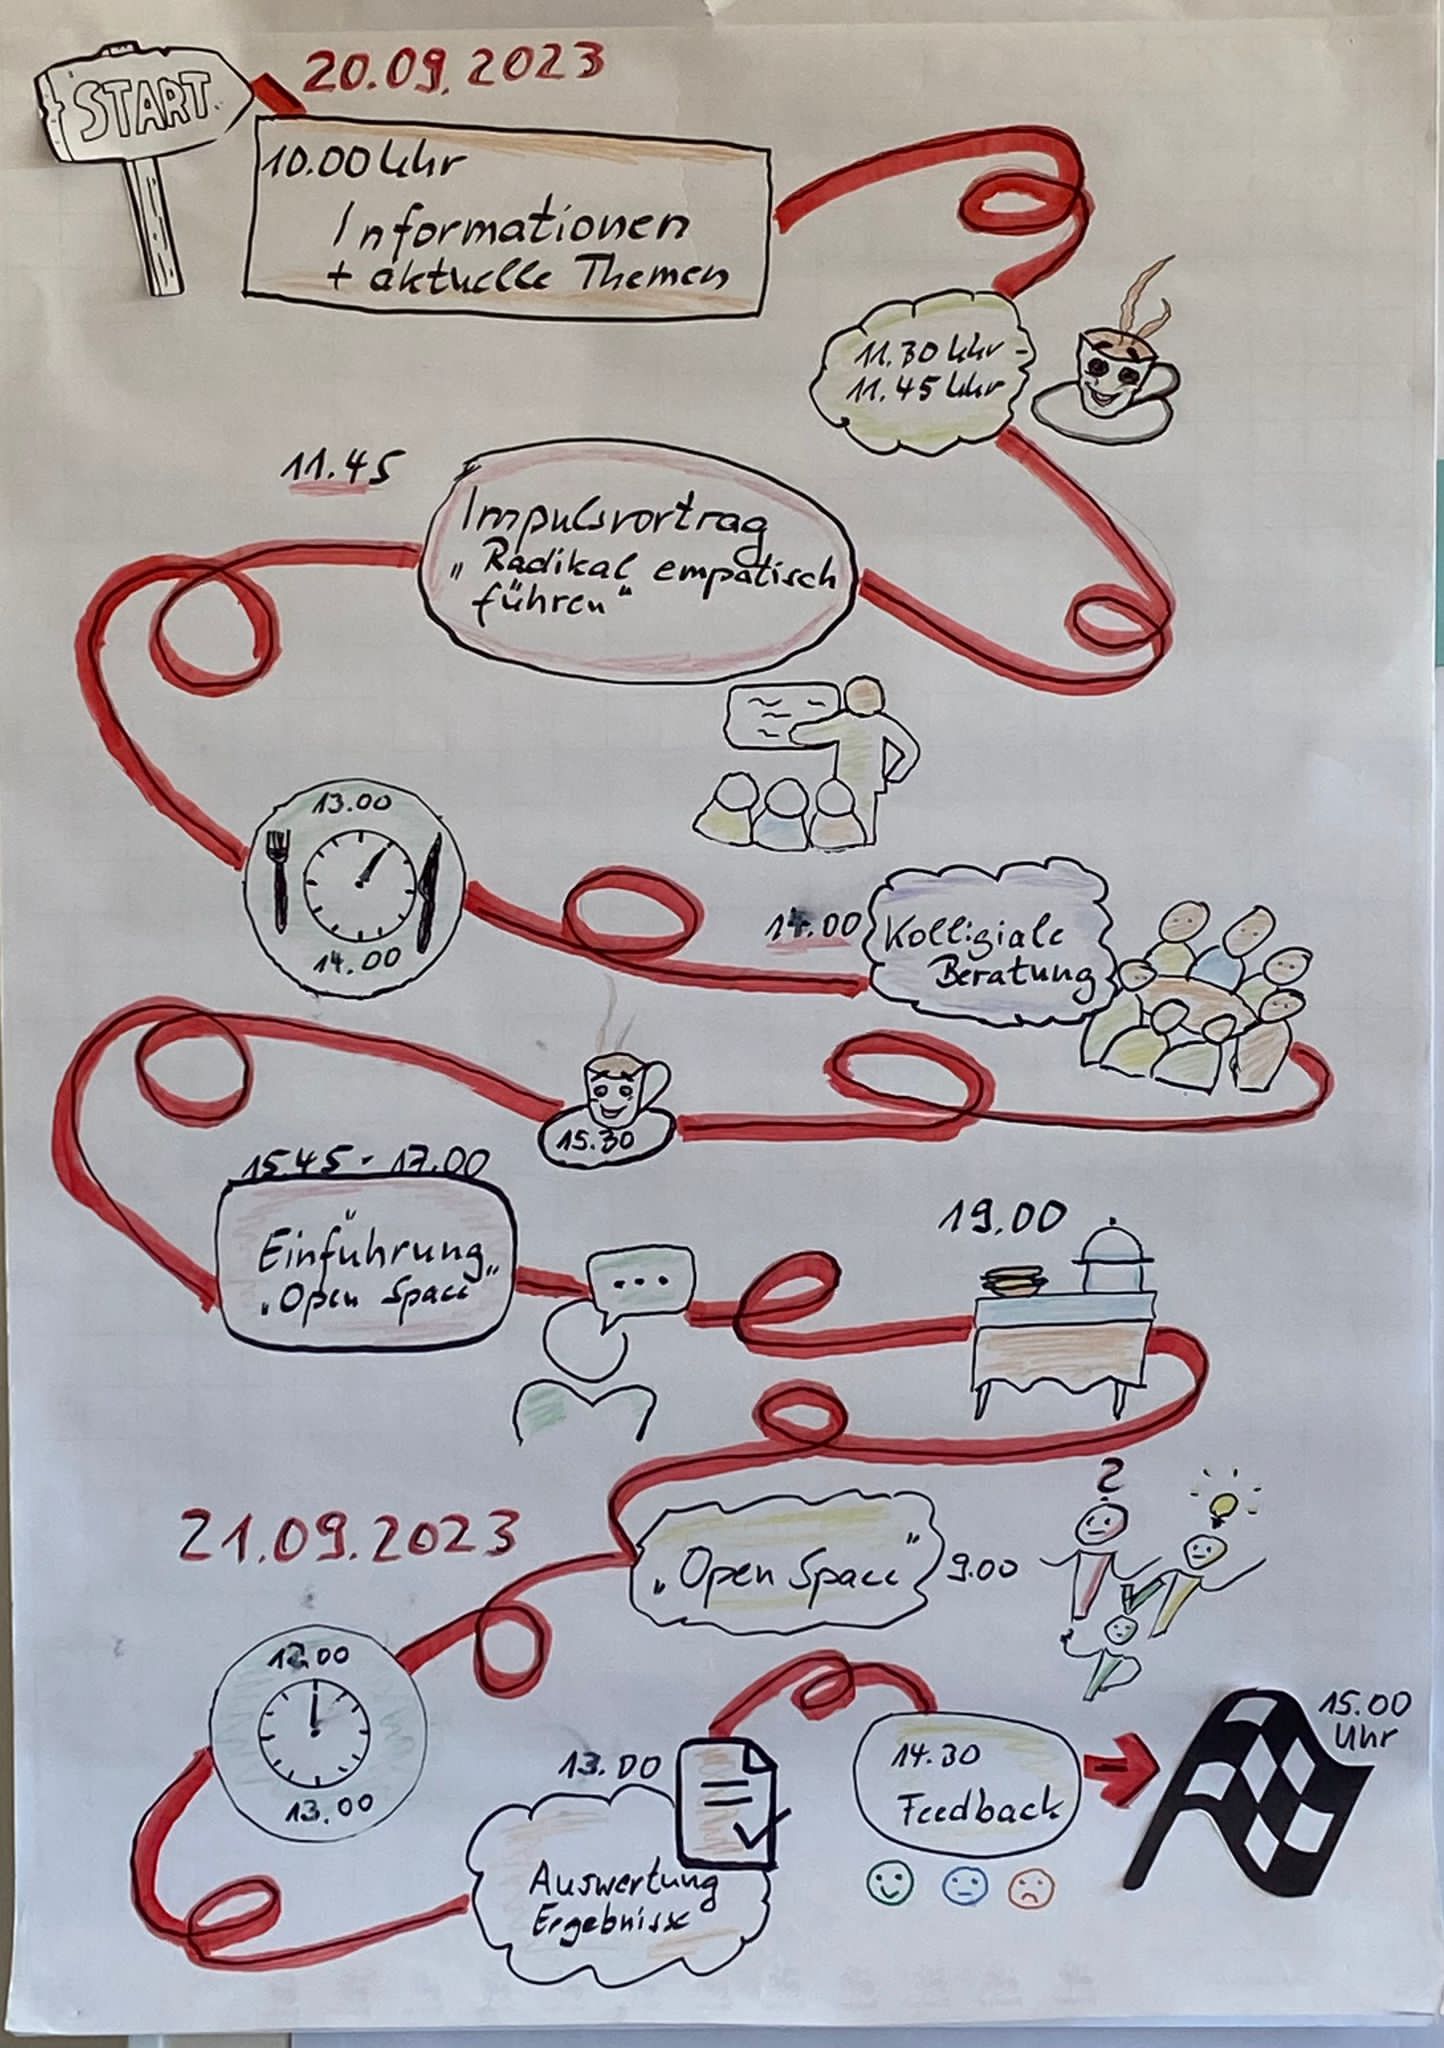 START
20.09.2023
10.00 Uhr
Informationen
+ aktuelle Themen
11.30 Uhr -
11.45 Uhr
11.45
Impulsvortrag
„Radikal empatisch
führen"
13.00
14.00
14.00
Kolligiale
Beratung
15.30
15.45 - 17.00
Einführung
„Open Space"
19.00
21.09.2023
„Open Space"
9.00
?
12.00
13.00
13.00
Auswertung
Ergebnisse
14.30
Feedback
15.00
Uhr